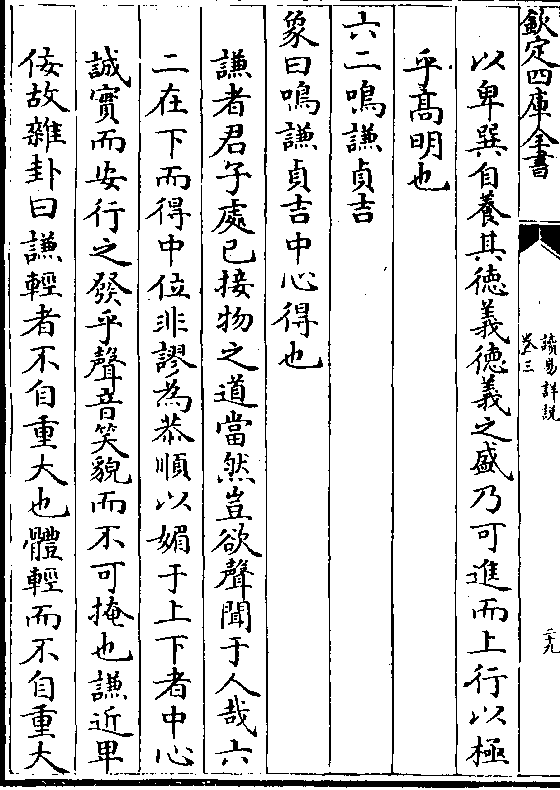 欽定四庫全書
讀易詳說
卷三
二九
以卑巽自養其徳義徳義之盛乃可進而上行以極
乎髙明也
六二鳴謙貞吉
象曰鳴謙貞吉中心得也
謙者君子處已接物之道當然豈欲聲聞于人哉六
二在下而得中位非謬為恭順以媚于上下者中心
誠實而安行之發乎聲音笑貌而不可掩也謙近卑
佞故雜卦曰謙輕者不自重大也體輕而不自重大